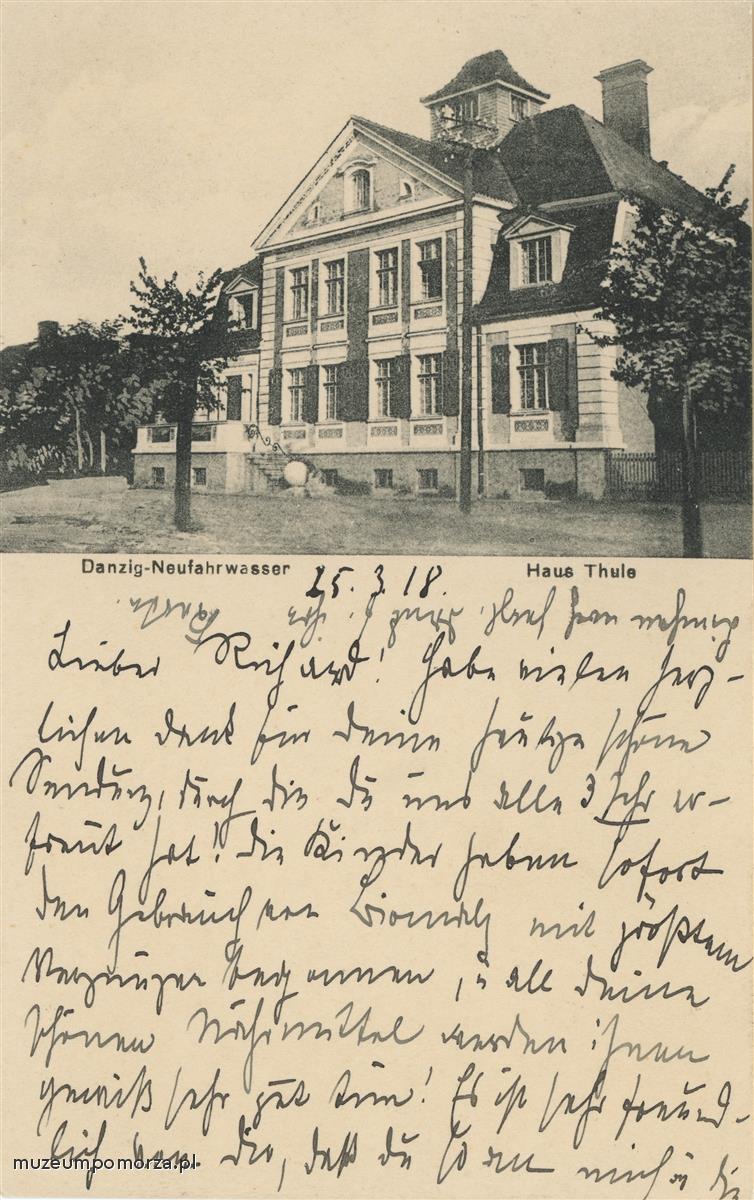 Danzig-Neufahrwasser
25. 3. 18.
Haus Thule
Lieber Richard! Habe vielen herz-
lichen Dank für deine heutige schöne
Sendung, durch die du uns alle 3 sehr er-
freut hat! Die Kinder haben sofort
den Gebrauch von Biomalz mit größtem
Vergnügen begonnen, u all deine
schönen Nährmittel werden ihnen
gewiß sehr gut tun! Es ist sehr freund-
lich von dir, daß du so an mich u die
muzeumpomorza.pl